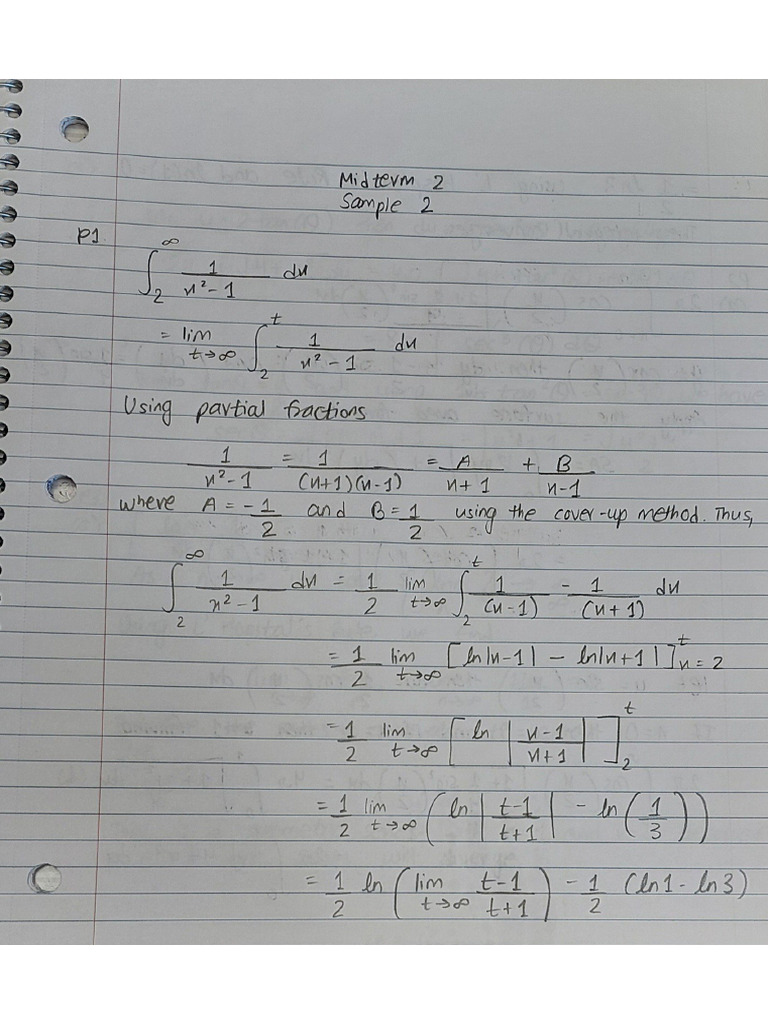 Midterm 2
Sample 2
P1.
∫_2^∞ 1/(x²-1) dx
= lim_{t→∞} ∫_2^t 1/(x²-1) dx
Using partial fractions
1/(x²-1) = 1/((x+1)(x-1)) = A/(x+1) + B/(x-1)
where A = -1/2 and B = 1/2 using the cover-up method. Thus,
∫_2^∞ 1/(x²-1) dx = 1/2 lim_{t→∞} ∫_2^t 1/(x-1) - 1/(x+1) dx
= 1/2 lim_{t→∞} [ln|x-1| - ln|x+1|]_{x=2}^t
= 1/2 lim_{t→∞} [ln |(x-1)/(x+1)|]_2^t
= 1/2 lim_{t→∞} (ln |(t-1)/(t+1)| - ln(1/3))
= 1/2 ln(lim_{t→∞} (t-1)/(t+1)) - 1/2 (ln1 - ln3)